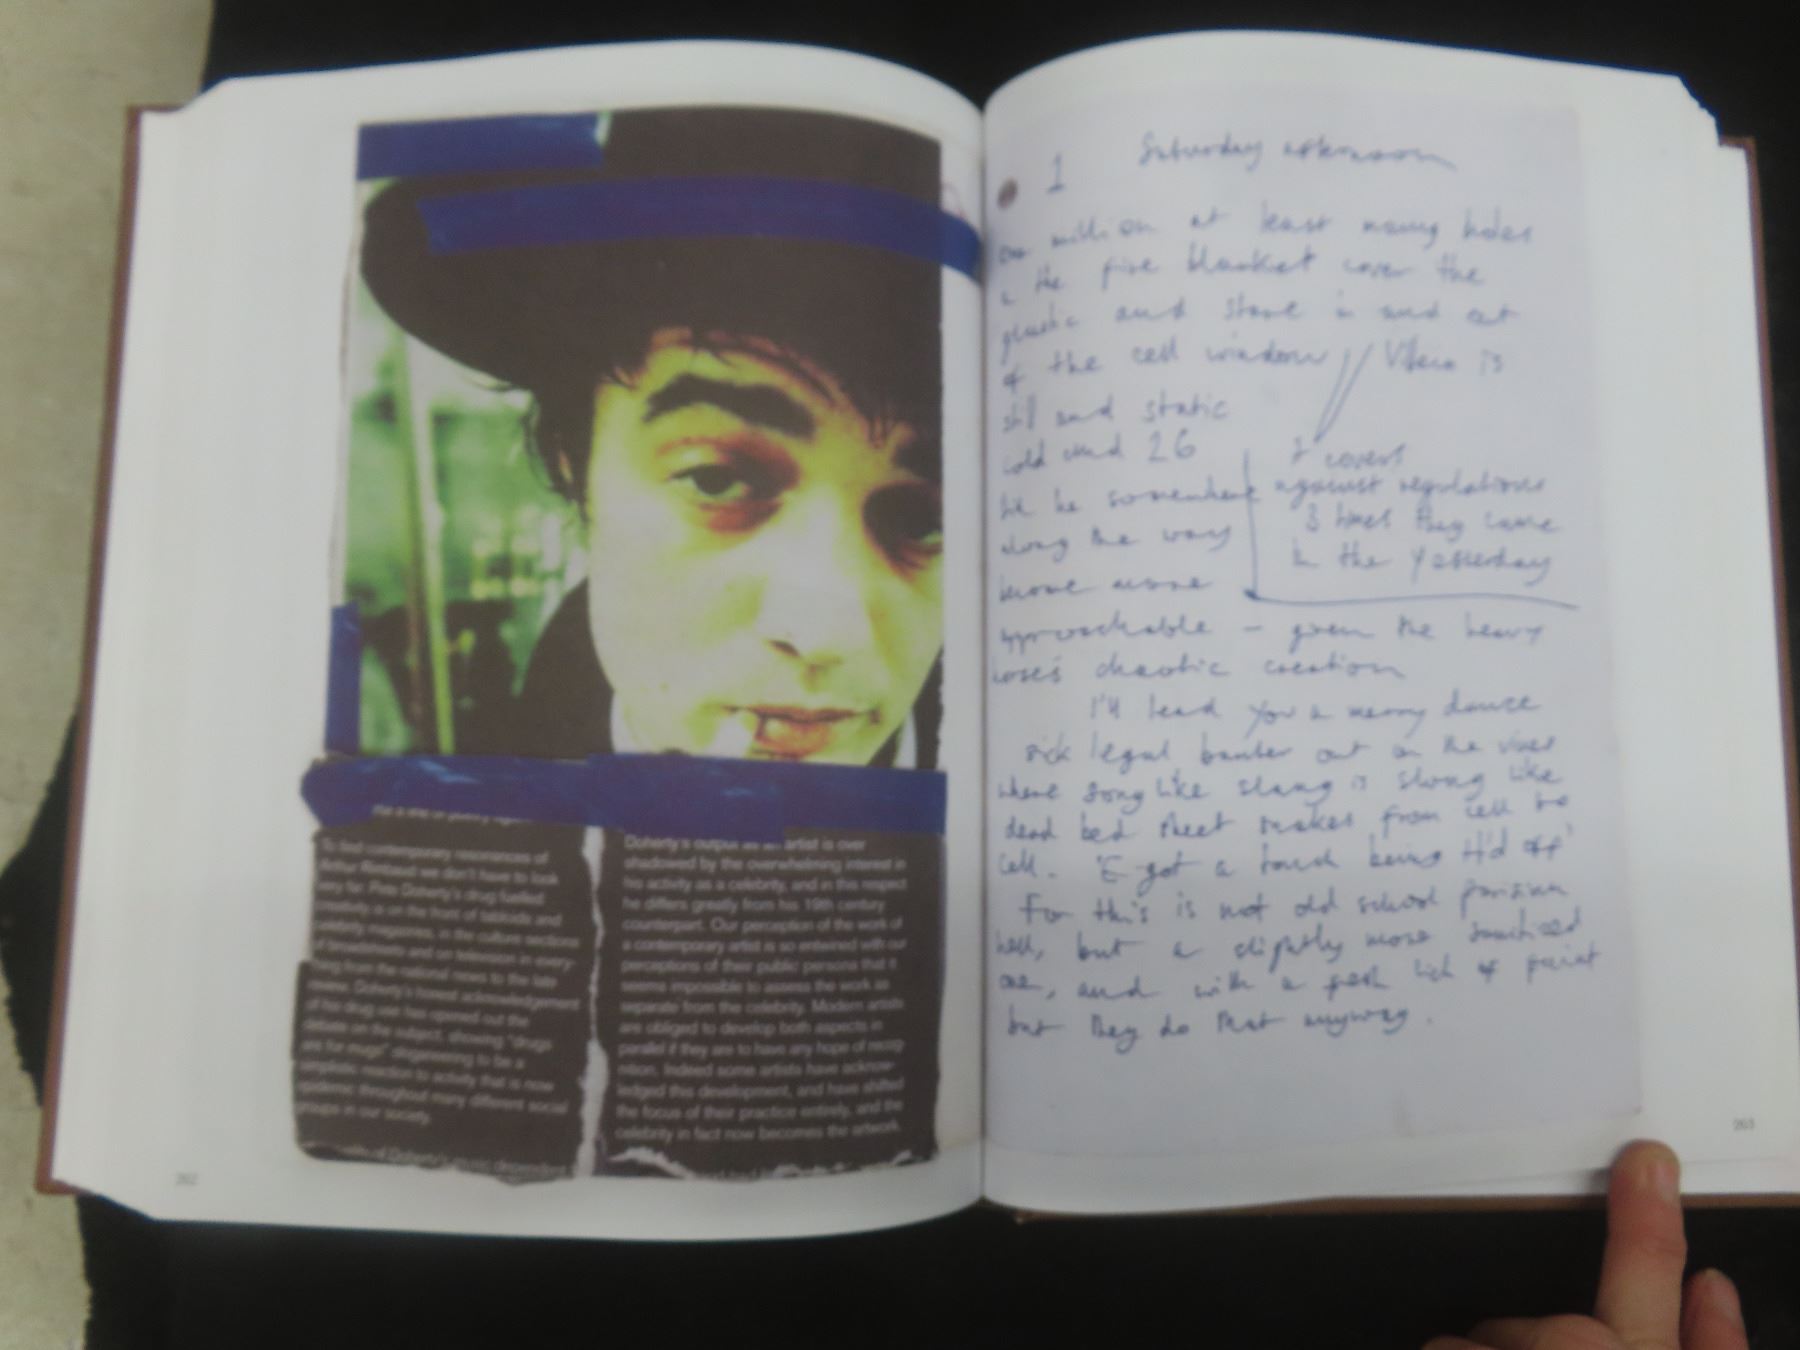 To find contemporary resonances of
Arthur Rimbaud we don't have to look
very far. Pete Doherty's drug fuelled
creativity is on the front of tabloids and
celebrity magazines, in the culture sections
of broadsheets and on television in every-
thing from the national news to the late
review. Doherty's honest acknowledgement
of his drug use has opened out the
debate on the subject, showing "drugs
are for mugs" sloganeering to be a
simplistic reaction to activity that is now
epidemic throughout many different social
groups in our society.
of Doherty's music dependent
Doherty's output as an artist is over
shadowed by the overwhelming interest in
his activity as a celebrity, and in this respect
he differs greatly from his 19th century
counterpart. Our perception of the work of
a contemporary artist is so entwined with our
perceptions of their public persona that it
seems impossible to assess the work as
separate from the celebrity. Modern artists
are obliged to develop both aspects in
parallel if they are to have any hope of recog-
nition. Indeed some artists have acknow-
ledged this development, and have shifted
the focus of their practice entirely, and the
celebrity in fact now becomes the artwork.
262
1 Saturday afternoon
million at least many holes
the fire blanket cover the
plastic and stare in and out
of the cell window // is
still and static
cold and 26
be somewhere
along the way
become more
approachable - given the heavy
chaotic creation
I covers
against regulations
3 times they came
in the yesterday
I'll lead you a merry dance
sick legal banter out on the
where song like slang is slung like
dead bed sheet snakes from cell to
cell. 'E got a touch being H'd off'
For this is not old school parisian
hell, but a slightly more sanitised
one, and with a fresh lick of paint
but they do that anyway.
263